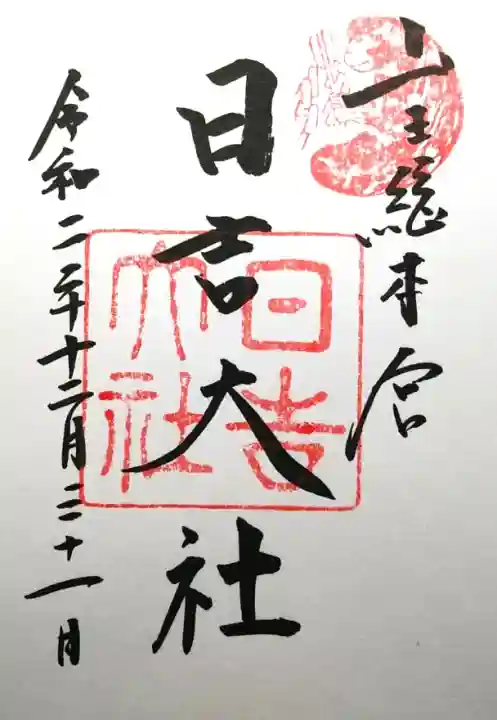 山王総本宮
日吉大社
日吉大社
令和二年十二月三十一日